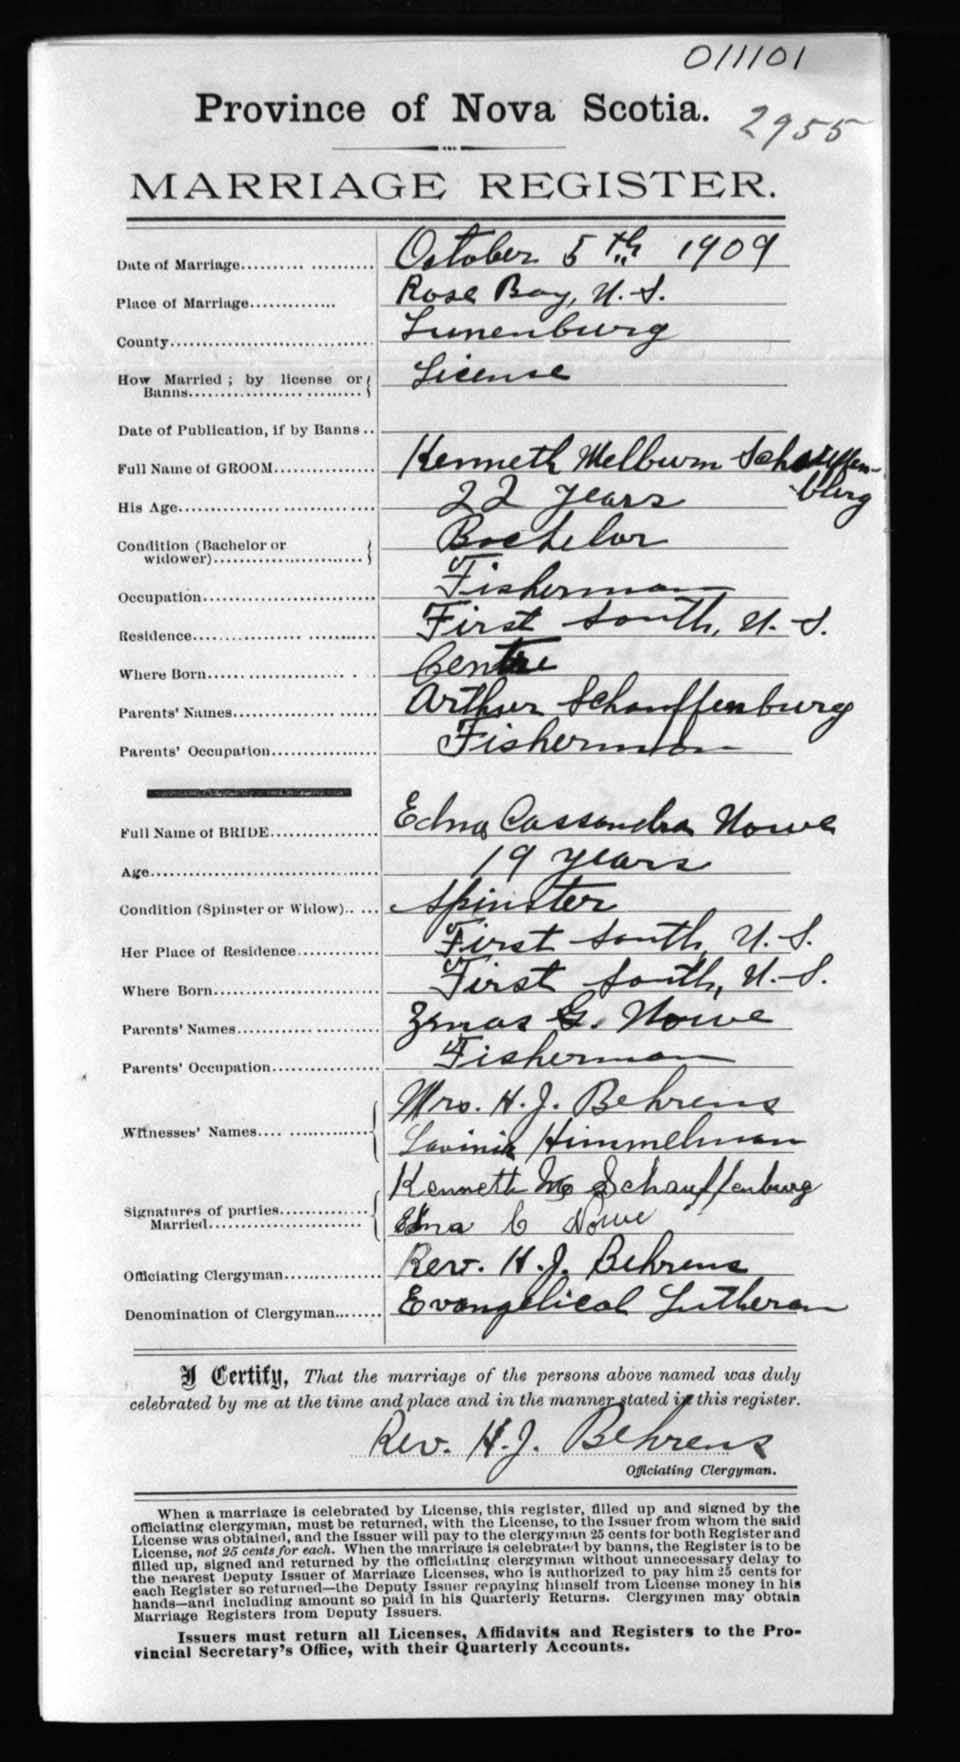 011101
Province of Nova Scotia.
2955
MARRIAGE REGISTER.
Date of Marriage........... ........... October 5th 1909
Place of Marriage.............. Rose Bay, N. S.
County................................. Lunenburg
How Married ; by license or Banns................... ......... License
Date of Publication, if by Banns ..
Full Name of GROOM............... Kenneth Melburn Schauffen-
burg
His Age................... ................. 22 years
Condition (Bachelor or widower)........................... Bachelor
Occupation............................. Fisherman
Residence.................. ............ First South, N. S.
Where Born...................... . . Centre
Parents' Names................ ........ Arthur Schauffenburg
Parents' Occupation................ Fisherman
Full Name of BRIDE................. Edna Cassandra Nowe
Age....................................... 19 years
Condition (Spinster or Widow).. ... Spinster
Her Place of Residence............. First South, N. S.
Where Born............................ First South, N. S.
Parents' Names............ ............ Zenas G. Nowe
Parents' Occupation................. Fisherman
Witnesses' Names.... ............... Mrs. H. J. Behrens
Lavinia Himmelman
Signatures of parties Married....................... Kenneth M Schauffenburg
Edna C Nowe
Officiating Clergyman............... Rev. H. J. Behrens
Denomination of Clergyman....... Evangelical Lutheran
I Certify, That the marriage of the persons above named was duly
celebrated by me at the time and place and in the manner stated in this register.
Rev. H. J. Behrens
Officiating Clergyman.
When a marriage is celebrated by License, this register, filled up and signed by the
officiating clergyman, must be returned, with the License, to the Issuer from whom the said
License was obtained, and the Issuer will pay to the clergyman 25 cents for both Register and
License, not 25 cents for each. When the marriage is celebrated by banns, the Register is to be
filled up, signed and returned by the officiating clergyman without unnecessary delay to
the nearest Deputy Issuer of Marriage Licenses, who is authorized to pay him 25 cents for
each Register so returned—the Deputy Issuer repaying himself from License money in his
hands—and including amount so paid in his Quarterly Returns. Clergymen may obtain
Marriage Registers from Deputy Issuers.
Issuers must return all Licenses, Affidavits and Registers to the Pro-
vincial Secretary's Office, with their Quarterly Accounts.